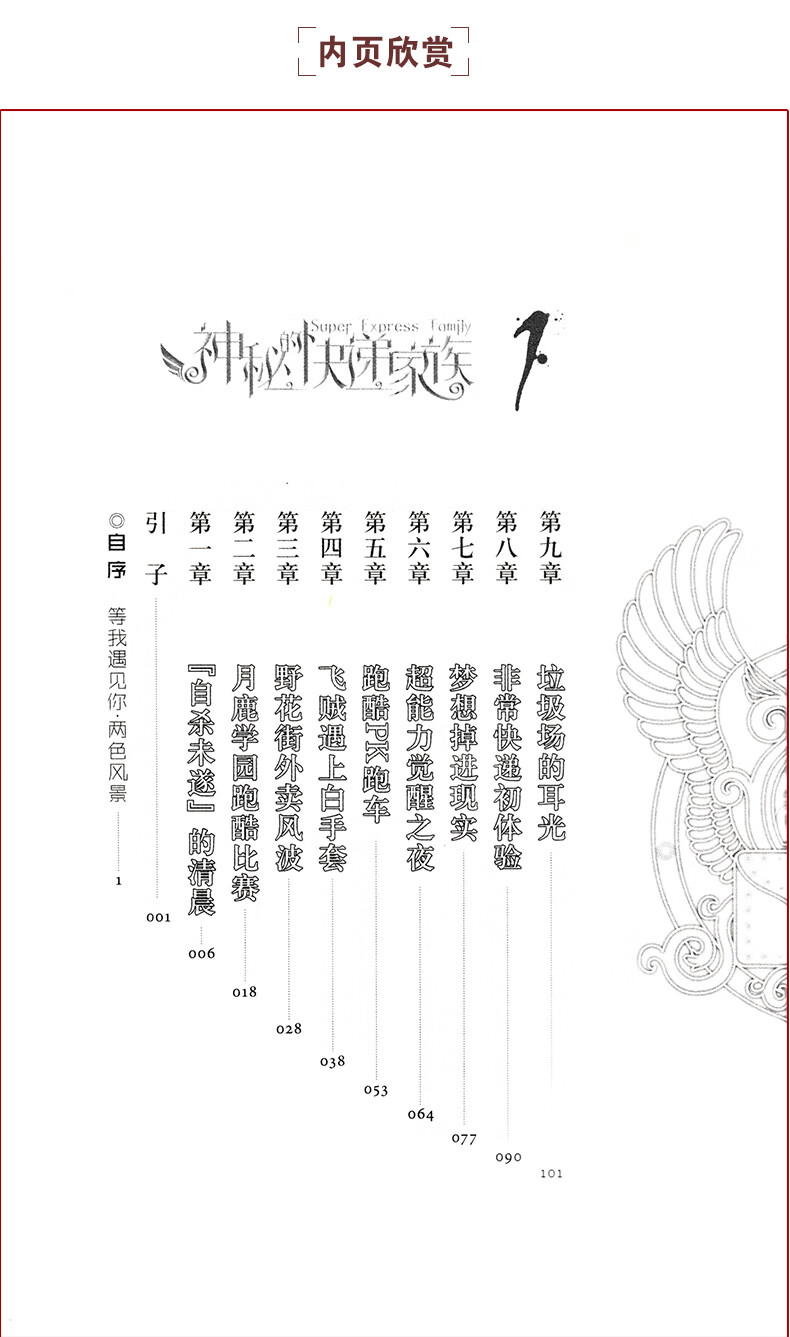 内页欣赏
Super Express Family
神秘的快递家族
1
◎自序 等我遇见你·两色风景 1
引子 001
第一章 『自杀未遂』的清晨 006
第二章 月鹿学园跑酷比赛 018
第三章 野花街外卖风波 028
第四章 飞贼遇上白手套 038
第五章 跑酷PK跑车 053
第六章 超能力觉醒之夜 064
第七章 梦想掉进现实 077
第八章 非常快递初体验 090
第九章 垃圾场的耳光 101